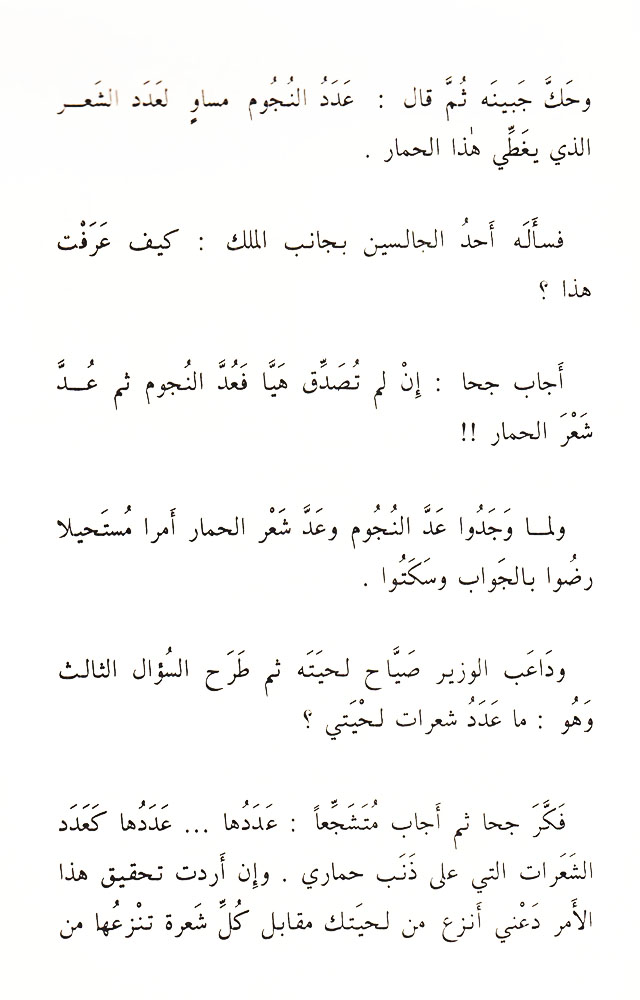 وحَكَّ جَبينَه ثُمَّ قال : عَدَدُ النُجُوم مساوٍ لعَدَد الشَعـر
الذي يغَطِّي هٰذا الحمار .
فسأَلَه أَحدُ الجالسين بجانب الملك : كيف عَرَفْت
هذا ؟
أَجاب جحا : إِنْ لم تُصَدِّق هَيَّا فَعُدَّ النُجوم ثم عُــدَّ
شَعْرَ الحمار !!
ولمـا وَجَدُوا عَدَّ النُجُوم وعَدَّ شَعْر الحمار أَمرا مُستَحيلا
رضُوا بالجَواب وسَكَتُوا .
ودَاعَب الوزير صَيَّاح لحيَتَه ثم طَرَح السُؤال الثالث
وَهُو : ما عَدَدُ شعرات لحْيَتي ؟
فَكَّرَ جحا ثم أَجاب مُتَشَجِّعاً : عَدَدُها ... عَدَدُها كَعَدَد
الشَعَرات التي على ذَنَب حماري . وإِن أَردت تحقيق هذا
الأَمر دَعْني أَنزع من لحيَتك مقابل كُلِّ شَعرة تنْزعُها من